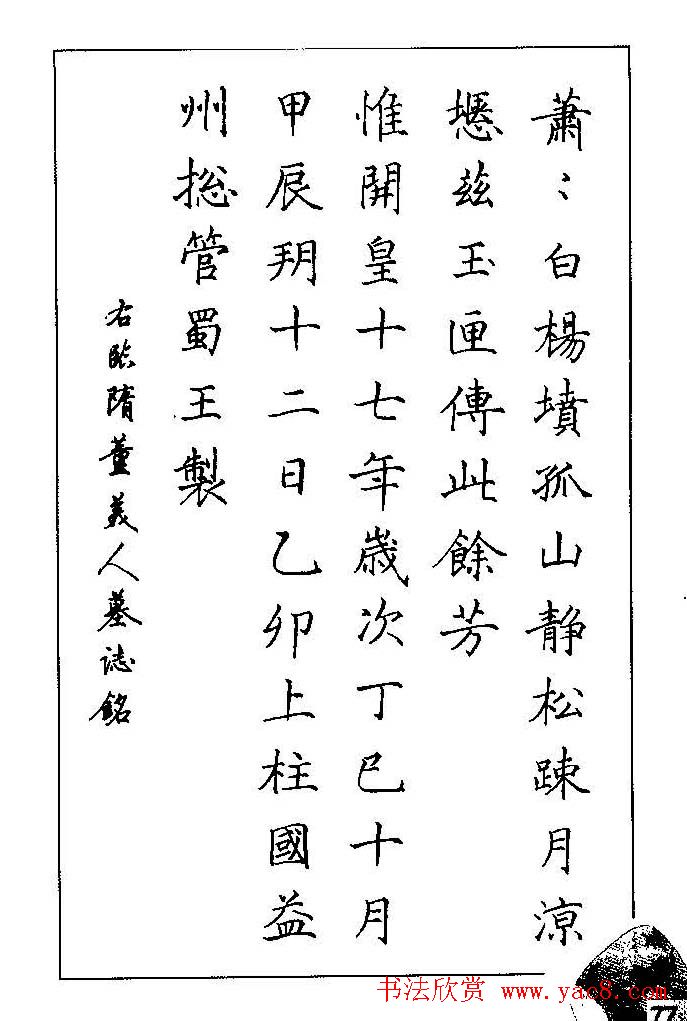 蕭〻白楊墳孤山靜松踈月凉
壥兹玉匣傳此餘芳
惟開皇十七年歲次丁巳十月
甲辰朔十二日乙卯上柱國益
州捴管蜀王製
右臨隋董美人墓誌銘
书法欣赏 www.yac8.com
77